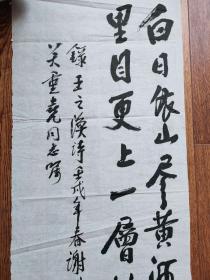 白日依山尽黄河
里目更上一層
錄王之渙诗壬戌年春谢
重堯同志嘱